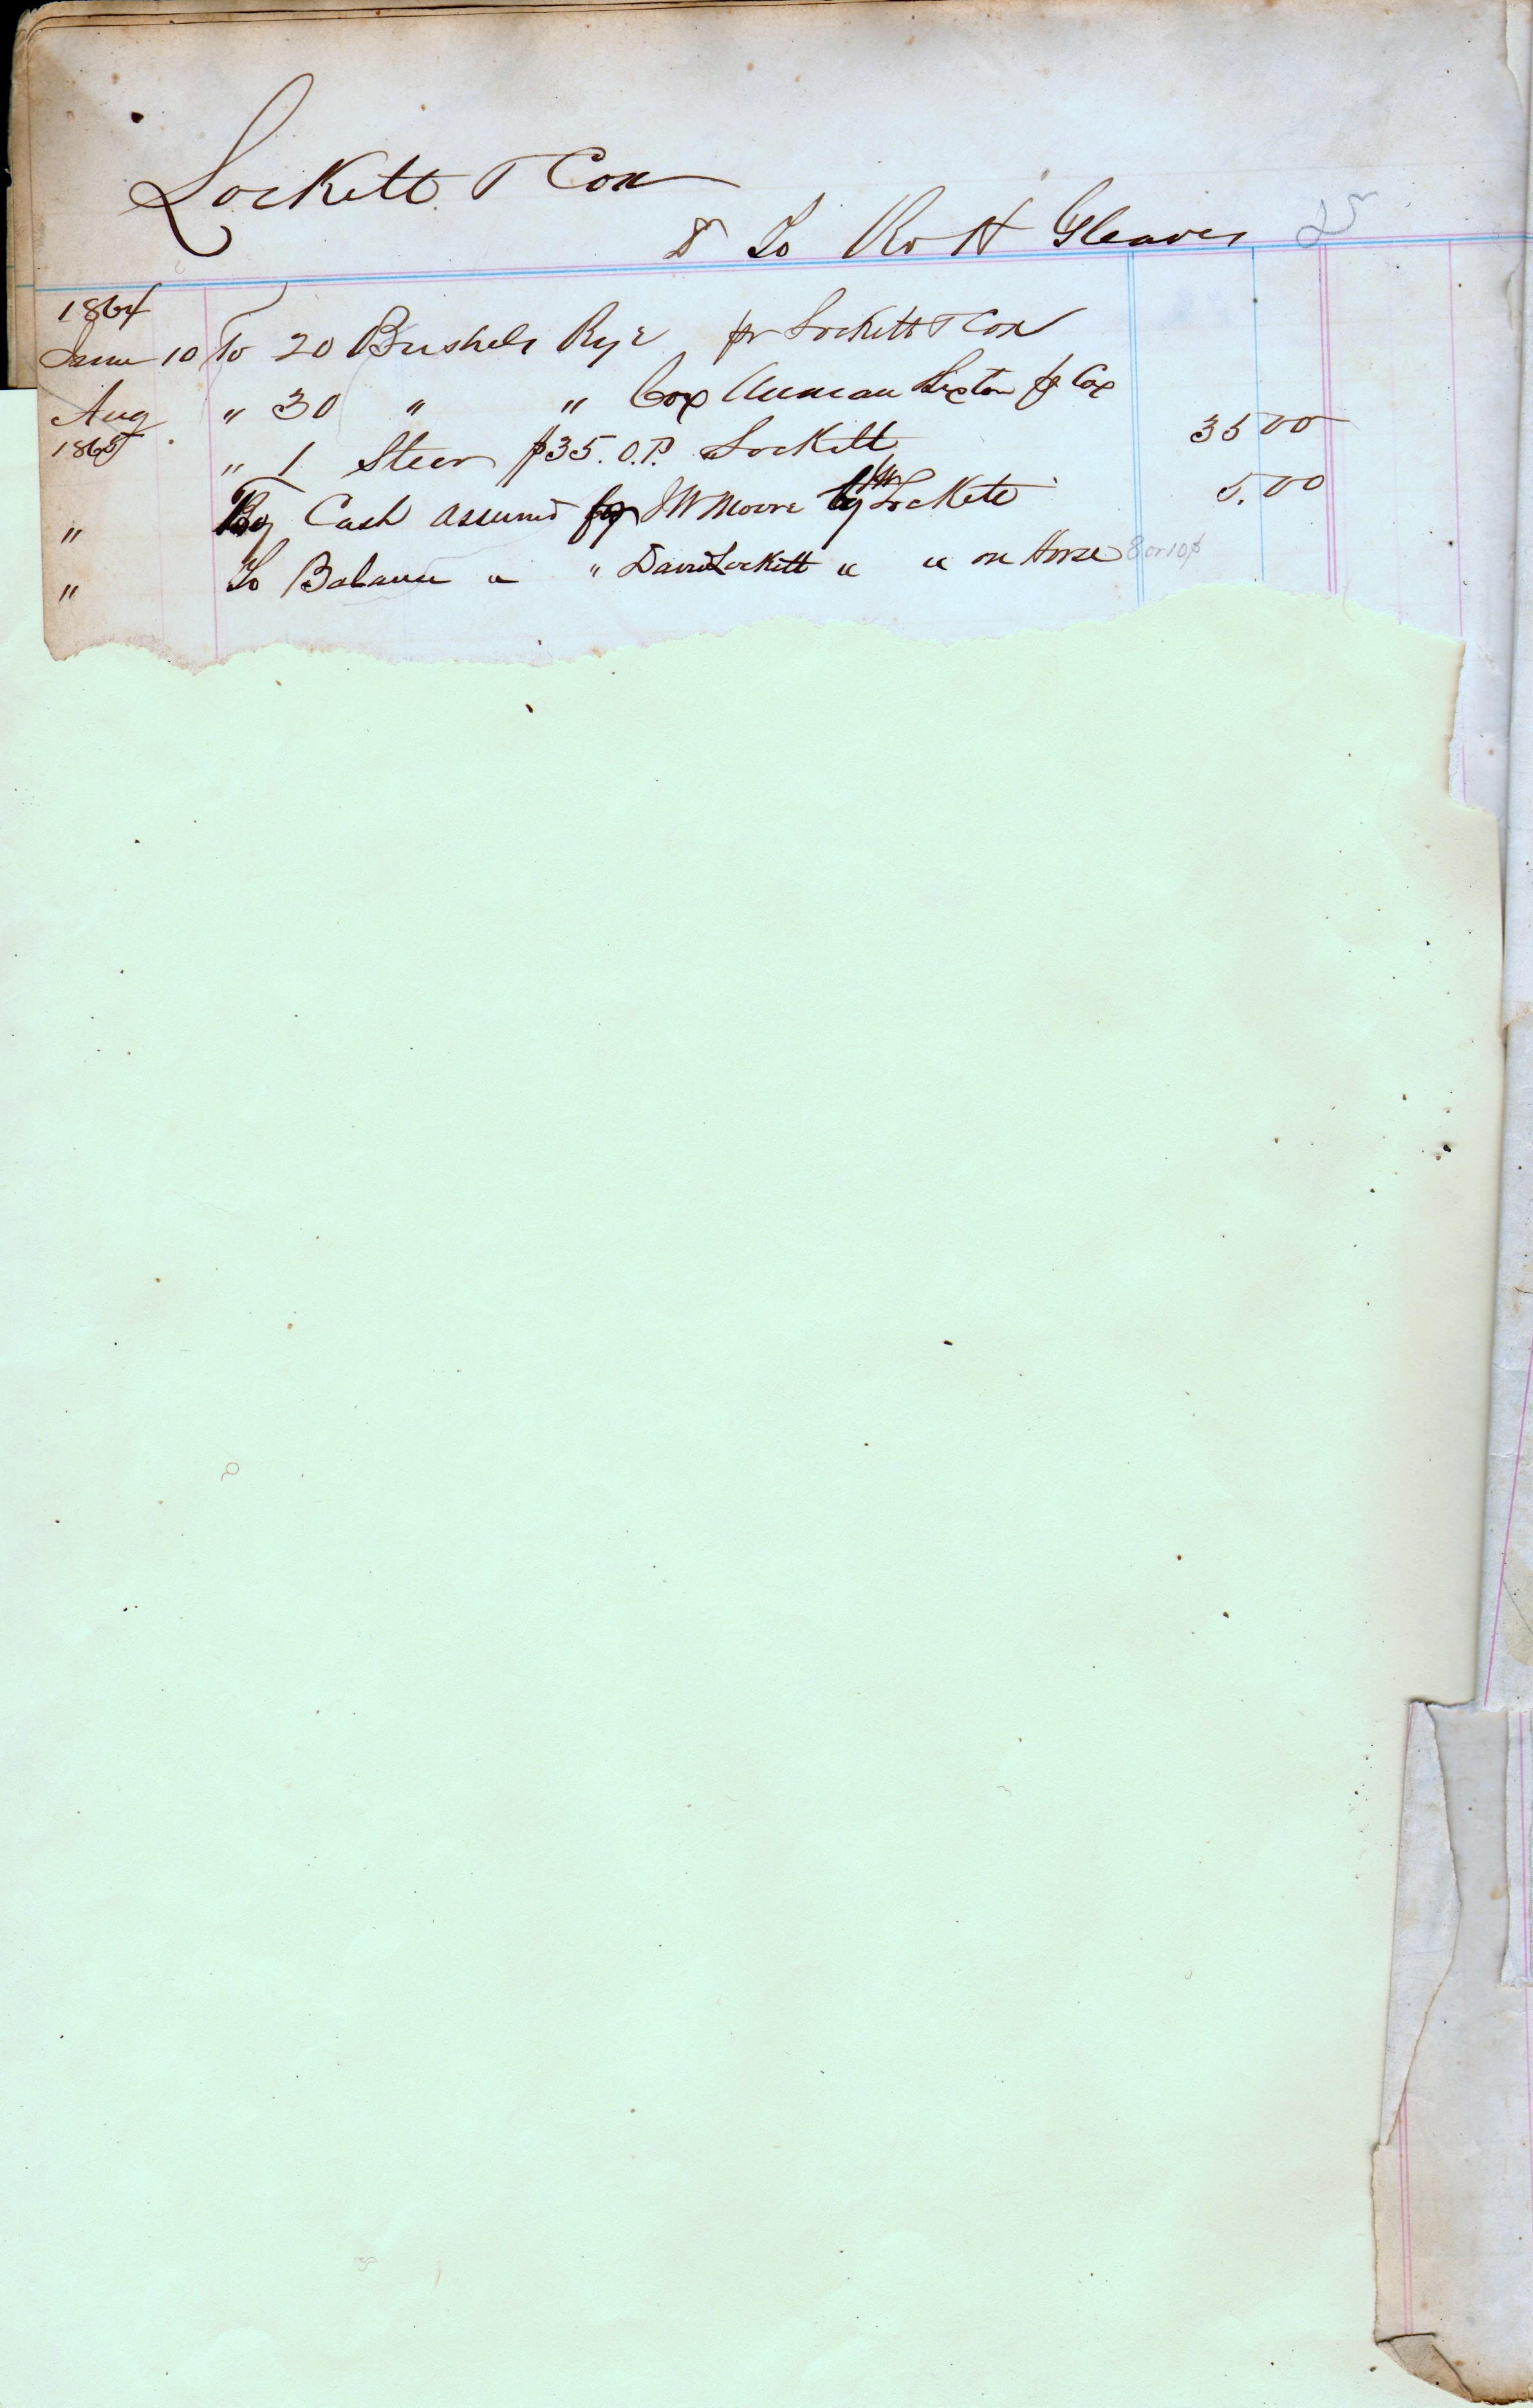 Lockett & Cox
Dr To Ro H Gleaves 25
1864
June 10 To 20 Bushels Rye pr Lockett & Cox
Aug " 30 " " Cox Sexton pr Cox
1865 " 1 Steer $35. O.P. Lockett 35 00
" By Cash assumed for JW Moore by Lockett 5.00
" To Balance " " David Lockett " " on Horse 8 or 10$